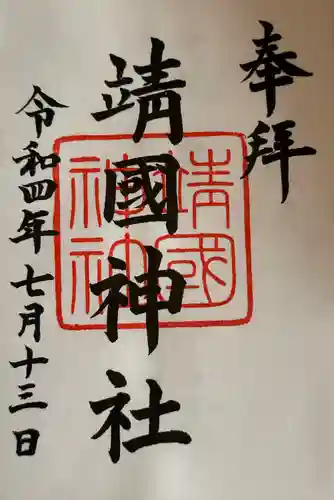 奉拝
靖國神社
靖國
神社
令和四年七月十三日